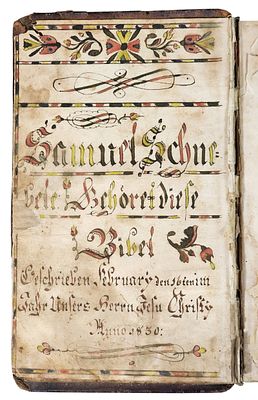 Samuel Schne-
bele: Gehöret diese
Bibel
Geschrieben February den 16ten im
Jahr Unsers Herrn Jesu Christy
Anno: 1830: